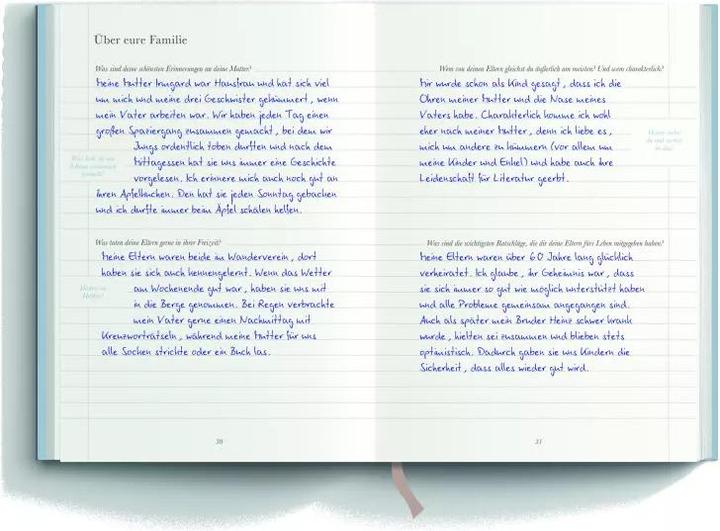 Über eure Familie
Was sind deine schönsten Erinnerungen an deine Mutter?
Meine Mutter Irmgard war Hausfrau und hat sich viel
um mich und meine drei Geschwister gekümmert, wenn
mein Vater arbeiten war. Wir haben jeden Tag einen
großen Spaziergang zusammen gemacht, bei dem wir
Jungs ordentlich toben durften und nach dem
Mittagessen hat sie uns immer eine Geschichte
vorgelesen. Ich erinnere mich auch noch gut an
ihren Apfelkuchen. Den hat sie jeden Sonntag gebacken
und ich durfte immer beim Äpfel schälen helfen.
Was taten deine Eltern gerne in ihrer Freizeit?
Meine Eltern waren beide im Wanderverein, dort
haben sie sich auch kennengelernt. Wenn das Wetter
am Wochenende gut war, haben sie uns mit
in die Berge genommen. Bei Regen verbrachte
mein Vater gerne einen Nachmittag mit
Kreuzworträtseln, während meine Mutter für uns
alle Socken strickte oder ein Buch las.
30
Wem von deinen Eltern gleichst du äußerlich am meisten? Und wem charakterlich?
Mir wurde schon als Kind gesagt, dass ich die
Ohren meiner Mutter und die Nase meines
Vaters habe. Charakterlich komme ich wohl
eher nach meiner Mutter, denn ich liebe es,
mich um andere zu kümmern (vor allem um
meine Kinder und Enkel) und habe auch ihre
Leidenschaft für Literatur geerbt.
Was sind die wichtigsten Ratschläge, die dir deine Eltern fürs Leben mitgegeben haben?
Meine Eltern waren über 60 Jahre lang glücklich
verheiratet. Ich glaube, ihr Geheimnis war, dass
sie sich immer so gut wie möglich unterstützt haben
und alle Probleme gemeinsam angegangen sind.
Auch als später mein Bruder Heinz schwer krank
wurde, hielten sie zusammen und blieben stets
optimistisch. Dadurch gaben sie uns Kindern die
Sicherheit, dass alles wieder gut wird.
31